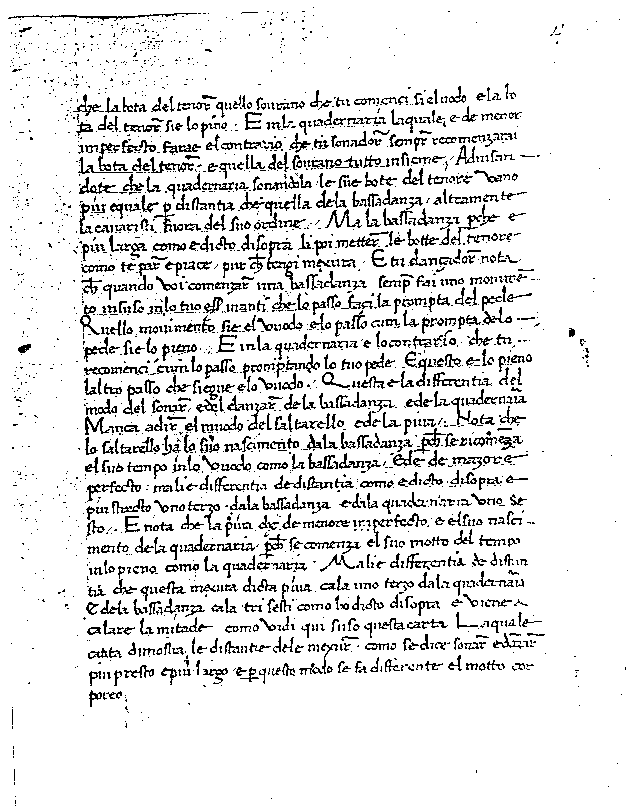 4
che la bota del tenor̄ quello sourano che tu comenci si el uodo e la bo
ta del tenor̄ sie lo pino. E in la quadernaria laquale e de menor
imperfecto farae el contrario che tu sonador̄ sempr̄ recomenzarai
la bota del tenor̄ e quella del sourano tutto insieme. Aduisan
dote che la quadernaria sonandola le sue bote del tenore vano
piu equale p̄ distantia che quella dela bassadanza altramente
la fuora del suo ordine. Ma la bassadanza pche e
piu larga como e dicto disopra li poi metter̄ le botte del tenore
como te par̄ e piace pur ch̄ tengi mexura. E tu dançador nota
ch̄ quando voi comenzar̄ una bassadanza semp̄ fai uno mouimē
to in suso in lo tuo ess̄ inanti che lo passo faci la prompta del pede
Quello mouimento sie el Vuodo e lo passo cum la prompta delo
pede sie lo pieno. E in la quadernaria e lo contrario che tu
recomenci cum lo passo promptando lo tuo pede E questo e lo pieno
laltro passo che siegue e lo Vuodo. Questa e la differentia del
modo del sonar̄ e del danzar̄ de la bassadanza e de la quadernaria
Manca adir̄ el modo del saltarello e de la piua. Nota che
lo saltarello ha lo suo nascimento da la bassadanza pch̄ se ricomēza
el suo tempo in lo Vuodo como la bassadanza. Ed e de mazor e
perfecto: ma li e differentia de distantia como e dicto disopra e
piu strecto uno terzo da la bassadanza e da la quadernaria uno se
sto. E nota che la piua dicē de menore imperfecto e el suo nasci
mento de la quadernaria pch̄ se comenza el suo motto del tempo
in lo pieno como la quadernaria. Ma li e differentia de distan
tia che questa mexura dicta piua cala uno terzo da la quadernaria
E de la bassadanza cala tri sesti como ho dicto disopra e viene a
calare la mitade como vidi qui suso questa carta Laquale
carta dimostra le distantie dele mexur̄ como se dice sonar̄ e dāzar̄
piu presto e piu largo e p questo modo se fa differente el motto cor
poreo.